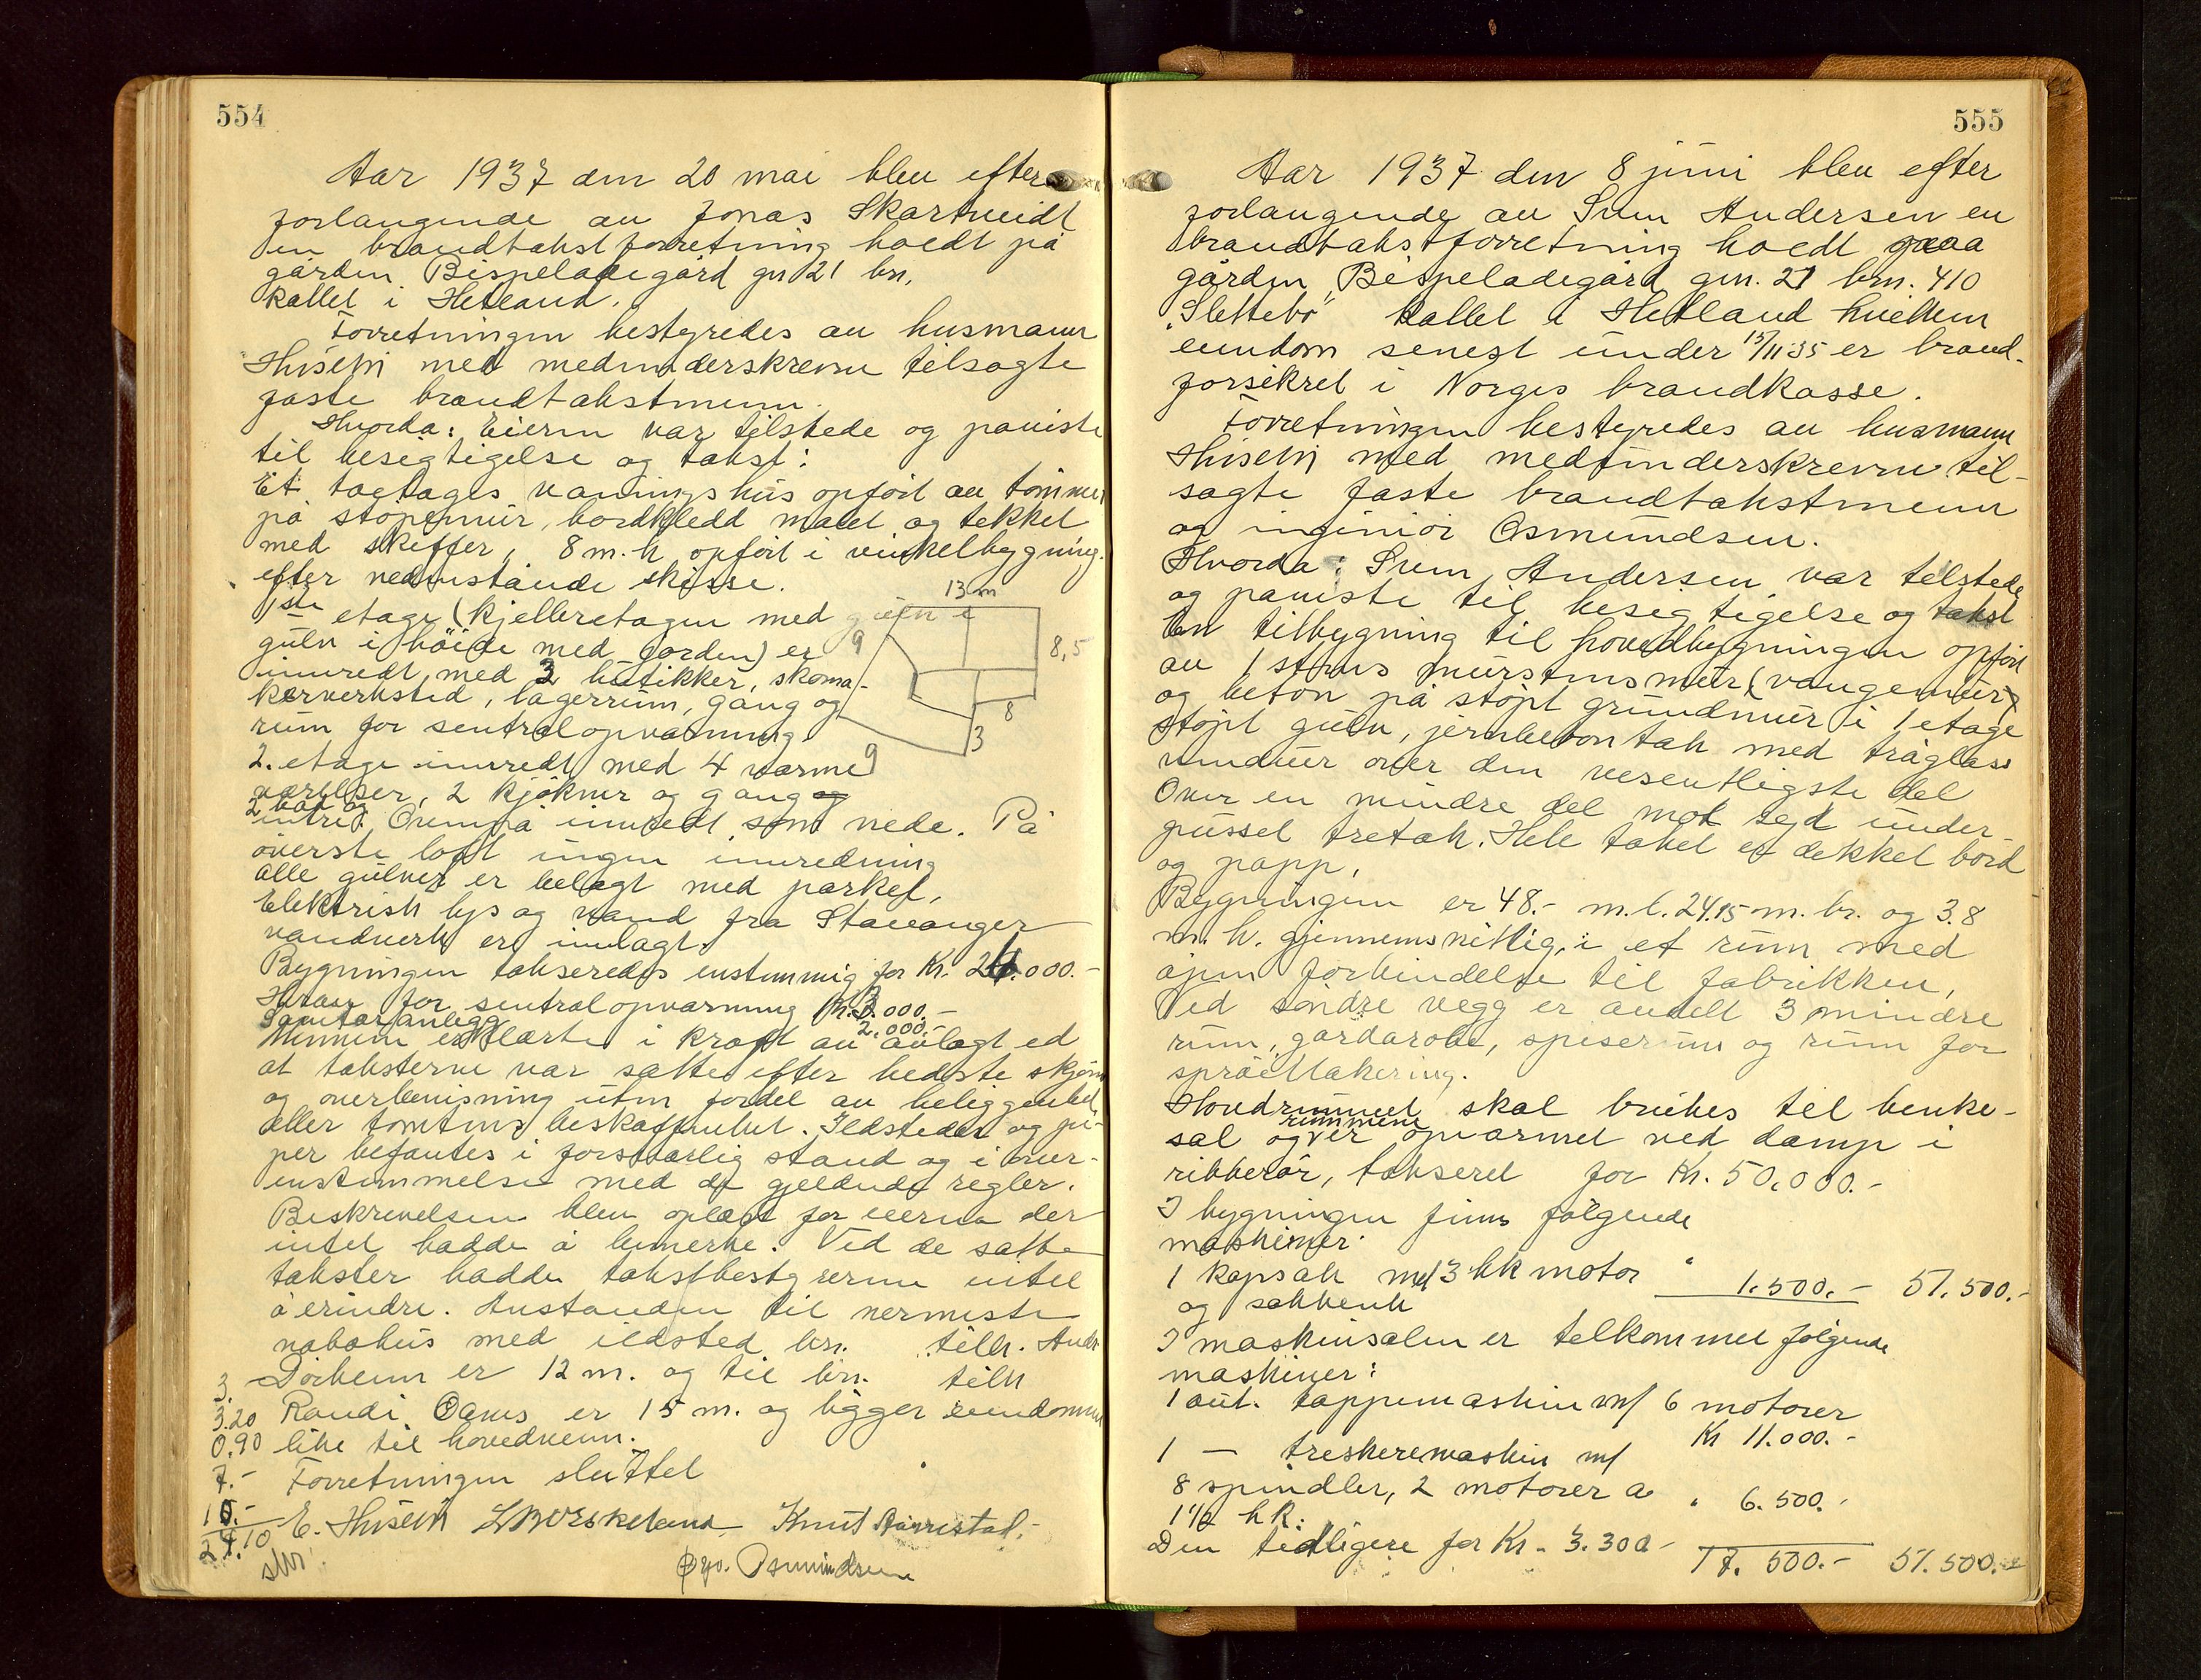 554
Aar 1937 den 20 mai blev efter
forlangende av Jonas Skartveidt
en brandtakstforretning hoedt på
gården Bispeladegård gn 21 bn.
kallet i Hetland.
Forretningen bestyredes av husmann
Husebø med medunderskrevne tilsagte
faste brandtakstmenn.
Hvorda: Eieren var tilstede og paviste
til besigtigelse og takst:
Et toetages vaaningshus opført av tømmer
på støpemur, bordkledd malet og tekket
med skiffer, 8 m. h. opført i vinkelbygning.
efter nedenstående skisse.
13 m
9
8,5
8
3
9
1ste etage (kjelleretagen med gulv i
gulv i høide med jorden) er
innredt med 3 butikker, skoma-
kerverksted, lagerrum, gang og
rum for sentralopvarming.
2. etage innredt med 4 varme
værelser, 2 kjøkner og gang og
2 bad og
entre. Ovenpå innredt som nede. På
øverste loft ingen innredning
Alle gulver er belagt med parket,
Elektrisk lys og vand fra Stavanger
vandverk er innlagt.
Bygningen takseredes enstemmig for Kr. 26.000.-
for sentralopvarming Kr. 3.000.-
Sanitæranlegg 2.000.-
Mennene erklærte i kraft av avlagt ed
at taksterne var satte efter bedste skjøn
og overbevisning uten fordel av beliggenhet
eller tomtens beskaffenhet. Ildsteder og pi-
per befantes i forsvarlig stand og i over-
enstemmelse med de gjeldende regler.
Beskrivelsen blev oplæst for eieren der
intet hadde å bemerke. Ved de satte
takster hadde takstbestyreren intet
å erindre. Avstanden til nermeste
nabohus med ildsted bn. tilh. Andr.
3. er 12 m. og til bn. tilh
3.20 Randi er 15 m. og ligger eiendommen
0.90 like til hovedveien.
7.- Forretningen sluttet
10.- E. Husebø Knut
24.10 Osmundsen
555
Aar 1937 den 8 juni blev efter
forlangende av Sven Andersen en
brandtakstforretning hoedt paa
gården Bispeladegård gn. 21 brn. 410
"Slettebø" kallet i Hetland hvilken
eiendom senest under 15/11 35 er brand-
forsikret i Norges brandkasse.
Forretningen bestyredes av husmann
Husebø med medunderskrevne til-
sagte faste brandtakstmenn
og ingeniør Osmundsen.
Hvorda: Sven Andersen var tilstede
og paviste til besigtigelse og takst
En tilbygning til hovedbygningen opført
av 1 stens murstensmur (vangemur)
og beton på støpt grundmur i 1 etage
støpt gulv, jernbeton tak med tråglass
vinduer over den vesentligste del
Over en mindre del mot syd under-
pusset tretak. Hele taket er dekket bord
og papp,
Bygningen er 48.- m. l. 24.15 m. br. og 3.8
m. h. gjennemsnitlig, i et rum med
åpen forbindelse til fabrikken,
Ved søndre vegg er avdelt 3 mindre
rum, gardarobe, spiserum og rum for
sprøitlakering.
Hovedrummet skal brukes til benke-
sal og rummene er opvarmet ved damp i
ribberør, takseret for Kr. 50.000.-
I bygningen finns følgende
maskiner:
1 kapsak m/ 3 hk motor " 1.500.- 51.500.-
og sakbenk
I maskinsalen er tilkommet følgende
maskiner:
1 aut. tappemaskin m/ 6 motorer
Kr 11.000.-
1 — m/
8 spindler, 2 motorer a " 6.500.-
1 1/2 hk.
Den tidligere for Kr. 3.300-
17.500.- 51.500.-